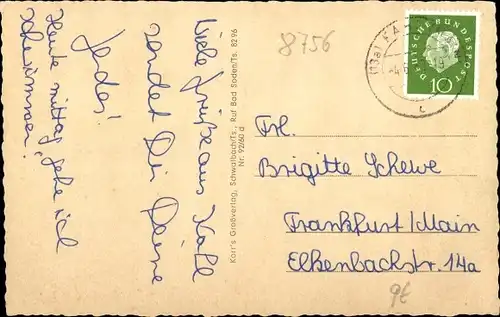 Viele Grüße aus Kahl
sendet Dir Deine
Heute mittag gehe ich
schwimmen.
Korr's Großverlag, Schwalbach/Ts., Ruf Bad Soden/Ts. 8296
Nr. 92/60 d
8756
(13a) KA
DEUTSCHE BUNDESPOST
10
Frl.
Brigitte Schewe
Frankfurt/Main
Elkenbachstr. 14a